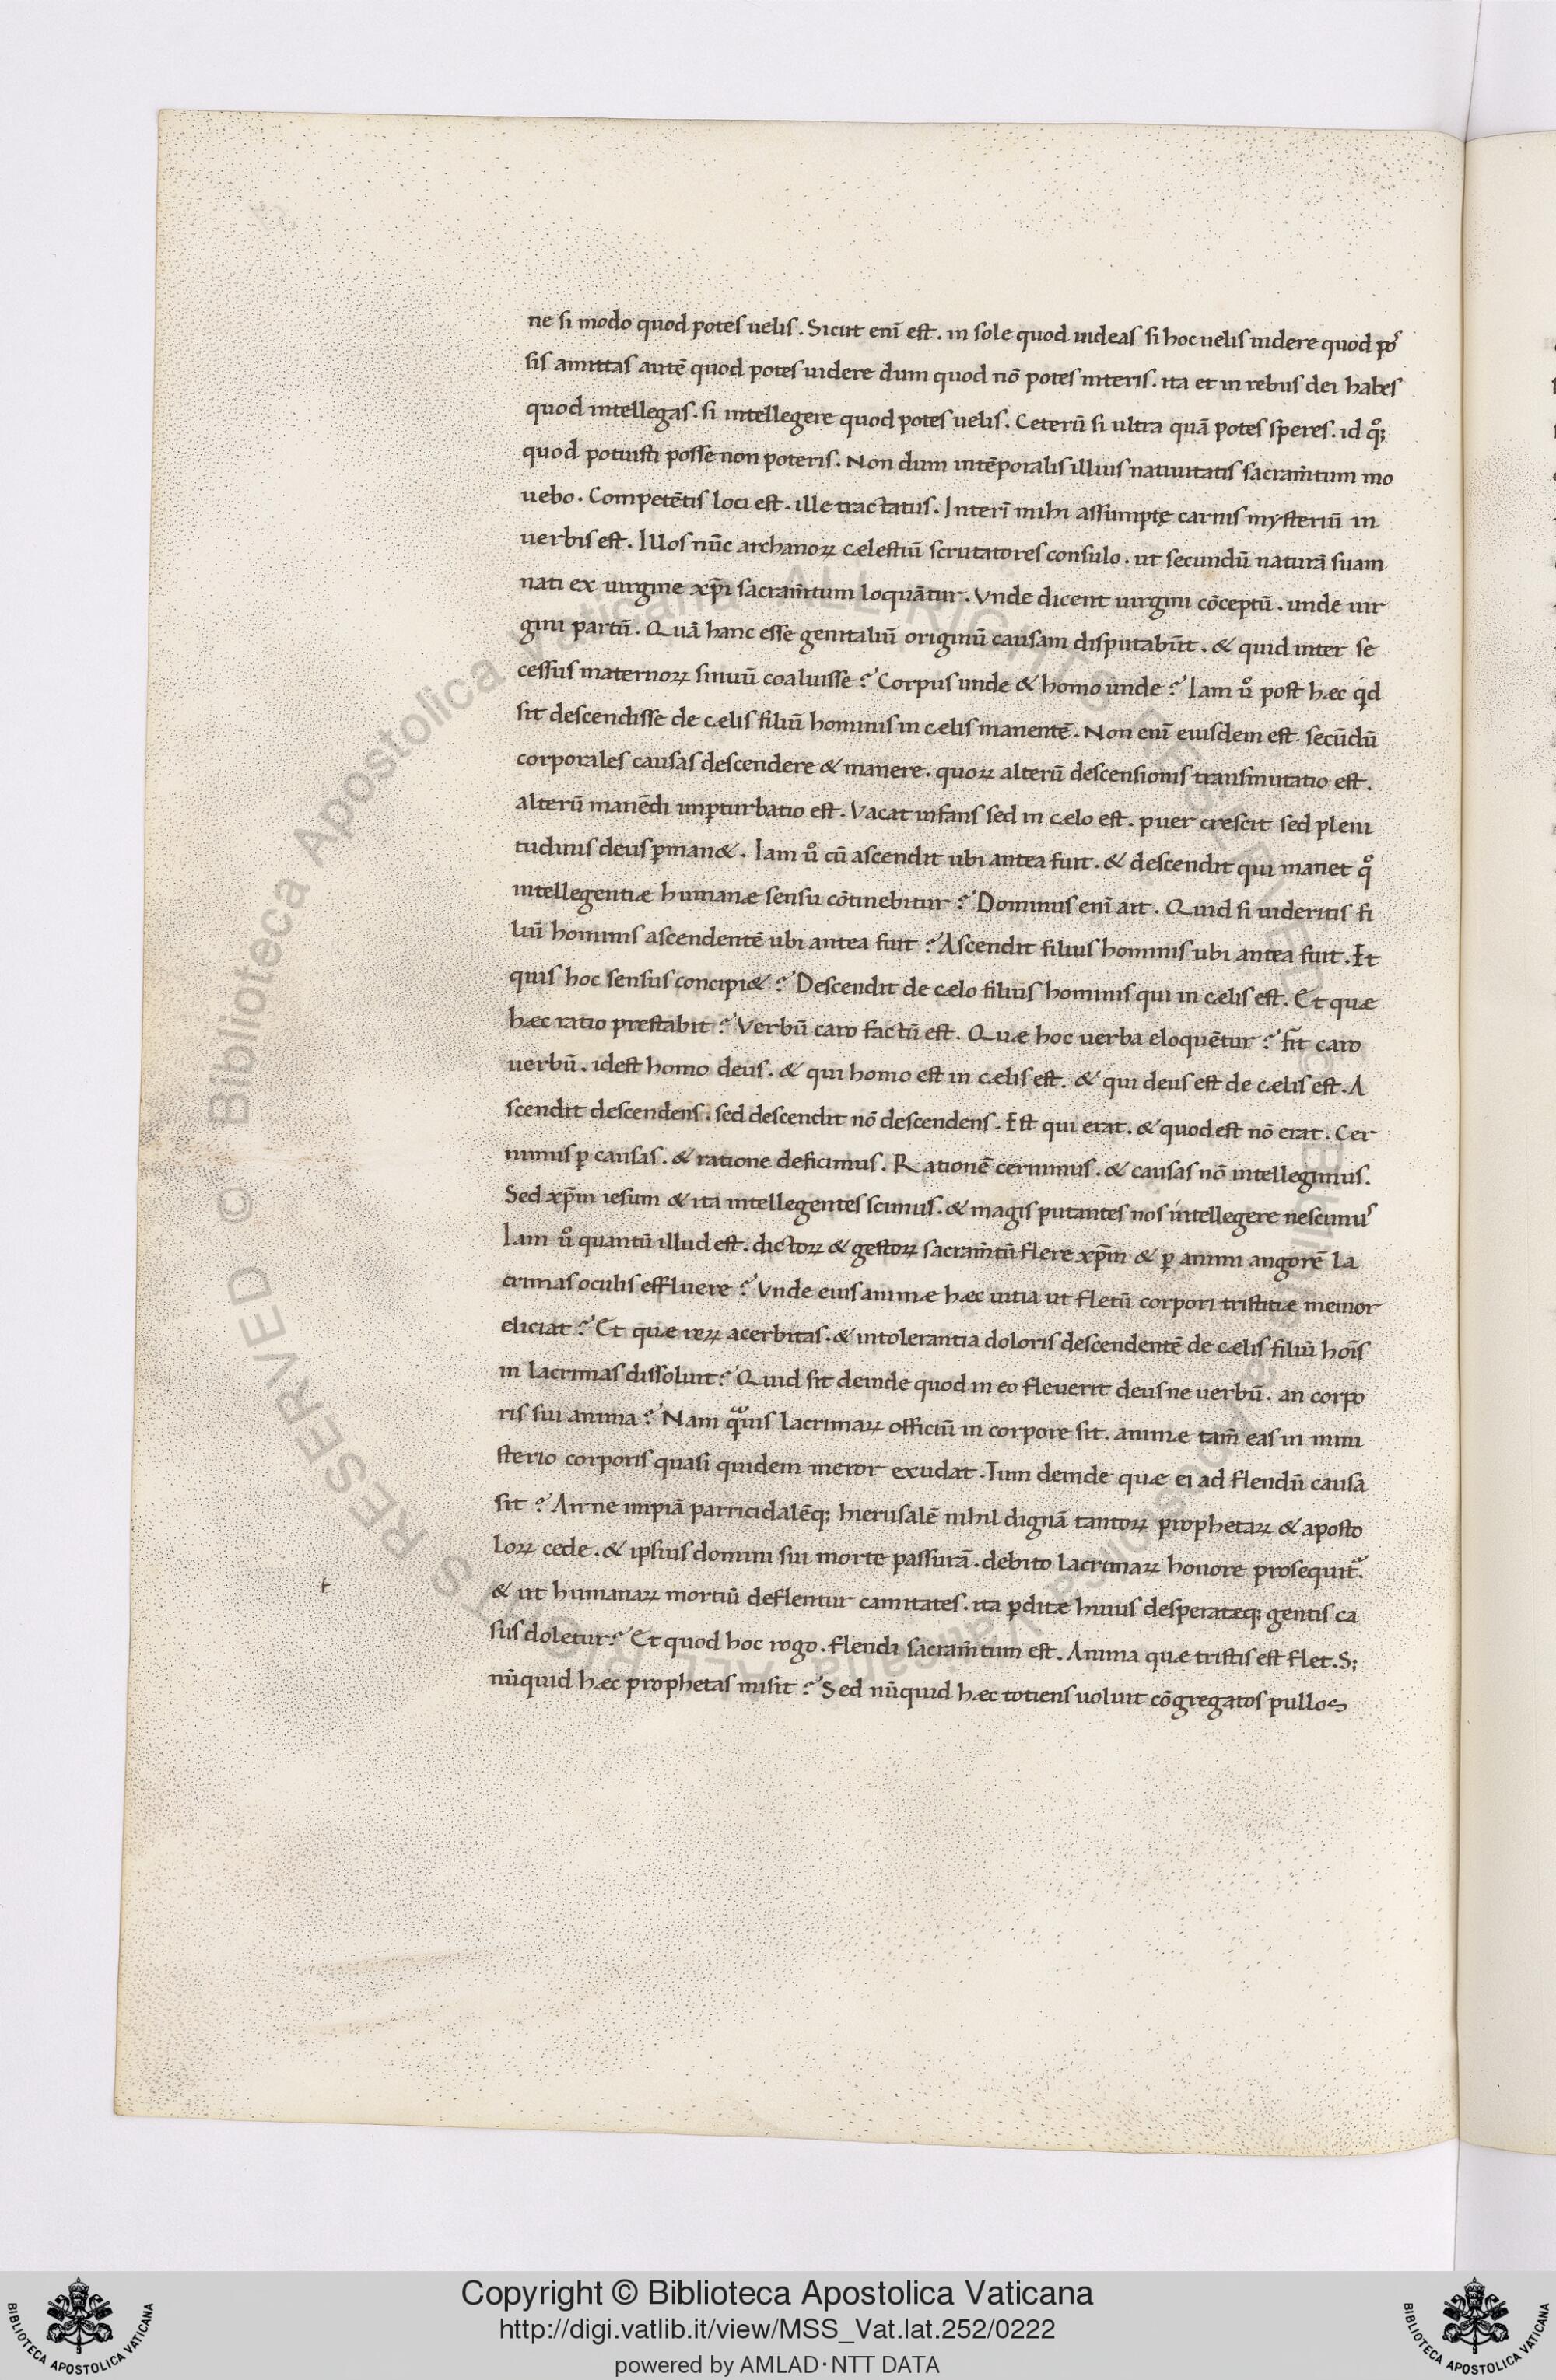 ne si modo quod potes uelis. Sicut enī est. in sole quod uideas si hoc uelis uidere quod pos
sis amittas autē quod potes uidere dum quod nō potes niteris. ita et in rebus dei habes
quod intellegas. si intellegere quod potes uelis. Ceterū si ultra quā potes speres. id qͦꝫ
quod potuisti posse non poteris. Non dum intēporalis illius natiuitatis sacram̄tum mo
uebo. Competētis loci est. ille tractatus. Interī mihi assumptę carnis mysteriū in
uerbis est. Illos nūc archanoꝝ cælestiū scrutatores consulo. ut secundū naturā suam
nati ex uirgine xp̄i sacram̄tum loquātur. Vnde dicent uirgini cōceptū. unde uir
gini partū. Quā hanc esse genitaliū originū causam disputabūt. & quid inter se
cessus maternoꝝ sinuū coaluisse? Corpus unde & homo unde? Iam uͦ post hæc qͥd
sit descendisse de cælis filiū hominis in cælis manentē. Non enī eiusdem est. secūdū
corporales causas descendere & manere. quoꝝ alterū descensionis transmutatio est.
alterū manēdi imꝑturbatio est. Vacat infans sed in cælo est. puer crescit sed pleni
tudinis deus ꝑman&. Iam uͦ cū ascendit ubi antea fuit. & descendit qui manet qͦ
intellegentiæ humanæ sensu cōtinebitur? Dominus enī ait. Quid si uideritis fi
liū hominis ascendentē ubi antea fuit? Ascendit filius hominis ubi antea fuit. Et
quis hoc sensus concipi&? Descendit de cælo filius hominis qui in cælis est. Et quæ
hæc ratio prestabit? Verbū caro factū est. Quæ hoc uerba eloquētur? fit caro
uerbū. idest homo deus. & qui homo est in cælis est. & qui deus est de cælis est. A
scendit descendens. sed descendit nō descendens. Est qui erat. & quod est nō erat. Cer
nimus ꝑ causas. & ratione deficimus. Rationē cernimus. & causas nō intellegimus.
Sed xp̄m iesum & ita intellegentes scimus. & magis putantes nos intellegere nescimus
Iam uͦ quantū illud est. dictoꝝ & gestoꝝ sacram̄tū flere xp̄m & ꝑ animi angorē la
crimas oculis effluere? Vnde eius animæ hæc uitia ut fletū corpori tristitiæ memor
eliciat? Et quæ reꝝ acerbitas. & intolerantia doloris descendentē de cælis filiū hoīs
in lacrimas dissoluit? Quid sit deinde quod in eo fleuerit deus ne uerbū. an corpo
ris sui anima? Nam qᷓuis lacrimaꝝ officiū in corpore sit. animæ tam̄ eas in mini
sterio corporis quasi quidem meror exudat. Tum deinde quæ ei ad flendū causa
sit? An ne impiā parricidalēqꝫ hierusalē nihil dignā tantoꝝ prophetaꝝ & aposto
loꝝ cede. & ipsius domini sui morte passurā. debito lacrimaꝝ honore prosequit᷑.
& ut humanaꝝ mortiū deflentur camitates. ita ꝑditæ huius desperatæqꝫ gentis ca
sus doletur? Et quod hoc rogo. flendi sacram̄tum est. Anima quæ tristis est flet. Sꝫ
nūquid hæc prophetas misit? Sed nūquid hæc totiens uoluit cōgregatos pullos
© Biblioteca Apostolica Vaticana ALL RIGHTS RESERVED
Copyright © Biblioteca Apostolica Vaticana
http://digi.vatlib.it/view/MSS_Vat.lat.252/0222
powered by AMLAD·NTT DATA
BIBLIOTECA APOSTOLICA VATICANA
BIBLIOTECA APOSTOLICA VATICANA